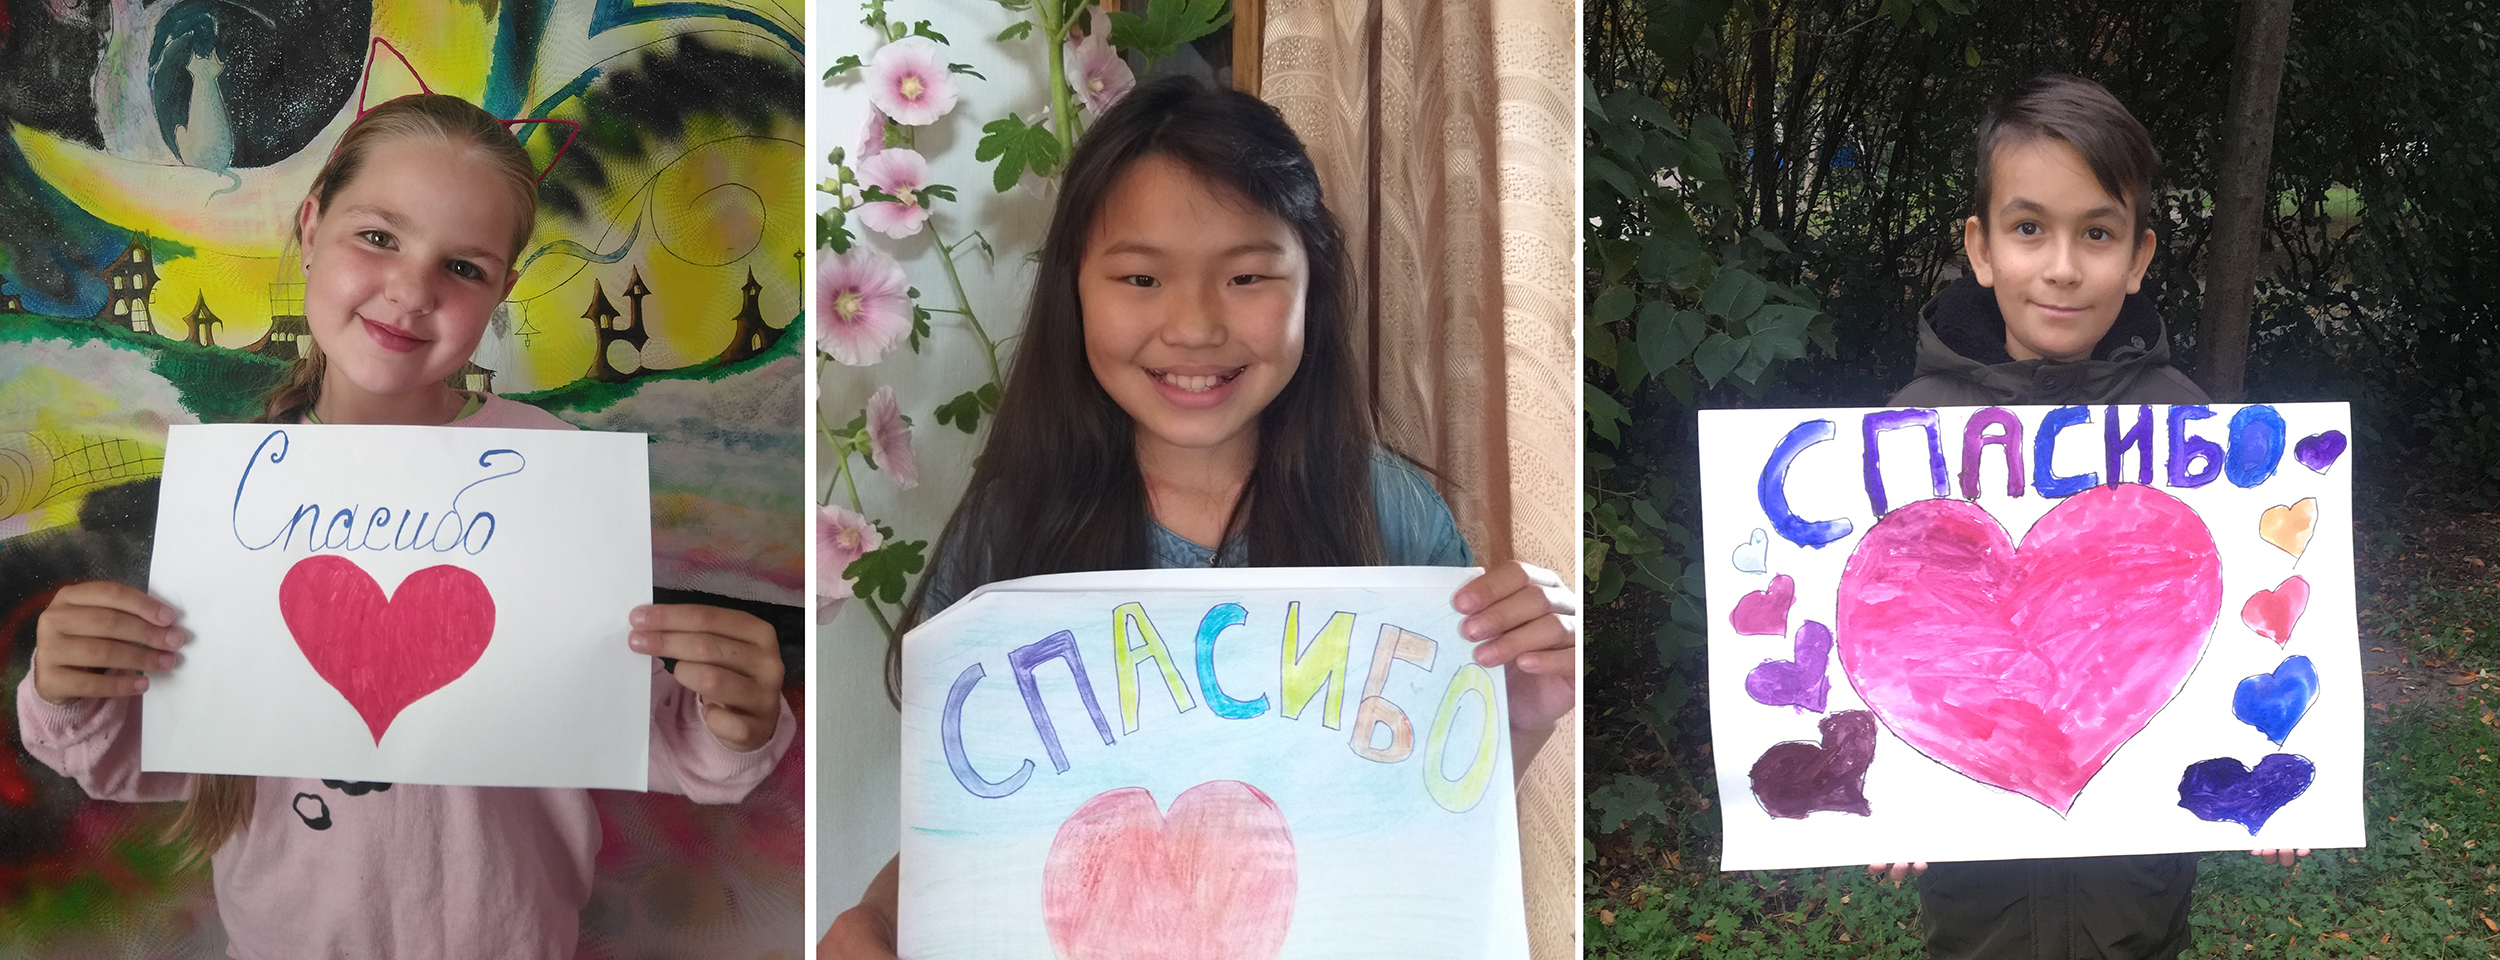 Спасибо
СПАСИБО
СПАСИБО